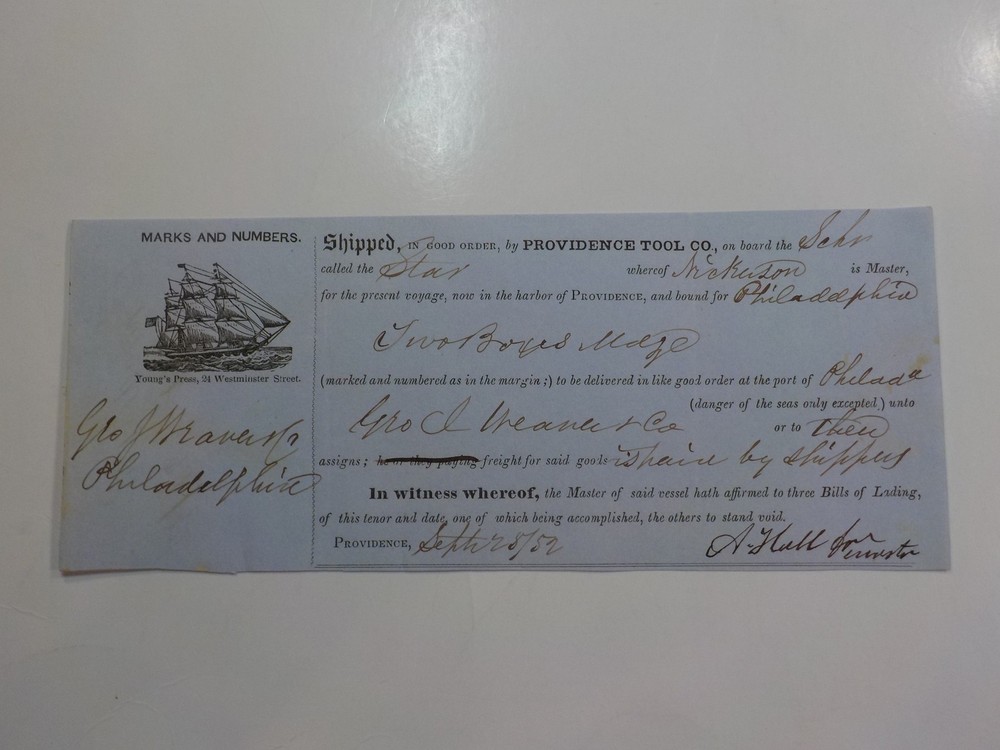 MARKS AND NUMBERS.
Young's Press, 24 Westminster Street.
Geo J Weaver & Co
Philadelphia
Shipped, IN GOOD ORDER, by PROVIDENCE TOOL CO., on board the Schr
called the Star whereof Nickerson is Master,
for the present voyage, now in the harbor of PROVIDENCE, and bound for Philadelphia
Two Boxes Mdze
(marked and numbered as in the margin;) to be delivered in like good order at the port of Philada
(danger of the seas only excepted) unto
Geo J Weaver & Co or to their
assigns; he or they paying freight for said goods is paid by shippers
In witness whereof, the Master of said vessel hath affirmed to three Bills of Lading,
of this tenor and date, one of which being accomplished, the others to stand void.
PROVIDENCE, Sept 28/52 A. Hall for master